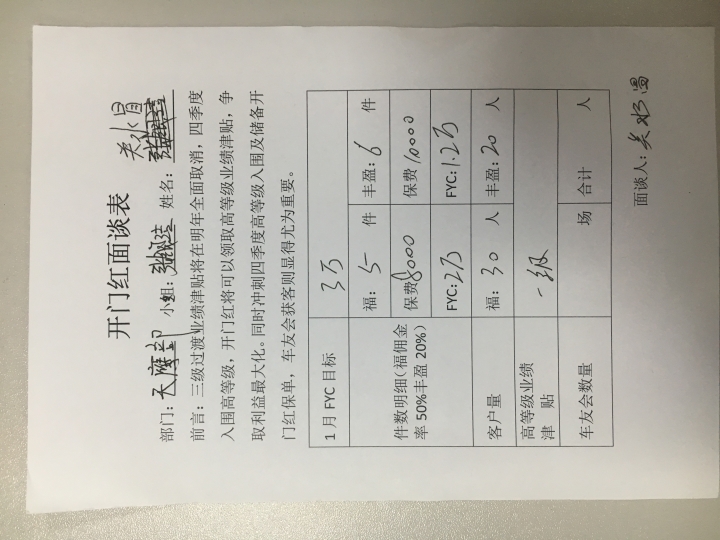 开门红面谈表
部门：天摩部 小组： 姓名：关水昌
前言：三级过渡业绩津贴将在明年全面取消，四季度
入围高等级，开门红将可以领取高等级业绩津贴，争
取利益最大化。同时冲刺四季度高等级入围及储备开
门红保单，车友会获客则显得尤为重要。
1月FYC目标 3万
件数明细（福佣金率50%丰盈20%） 福：5 件 丰盈：6 件
保费8000 保费10000
FYC：2万 FYC：1.2万
客户量 福：30 人 丰盈：20 人
高等级业绩津 贴 一级
车友会数量 场 合计 人
面谈人：